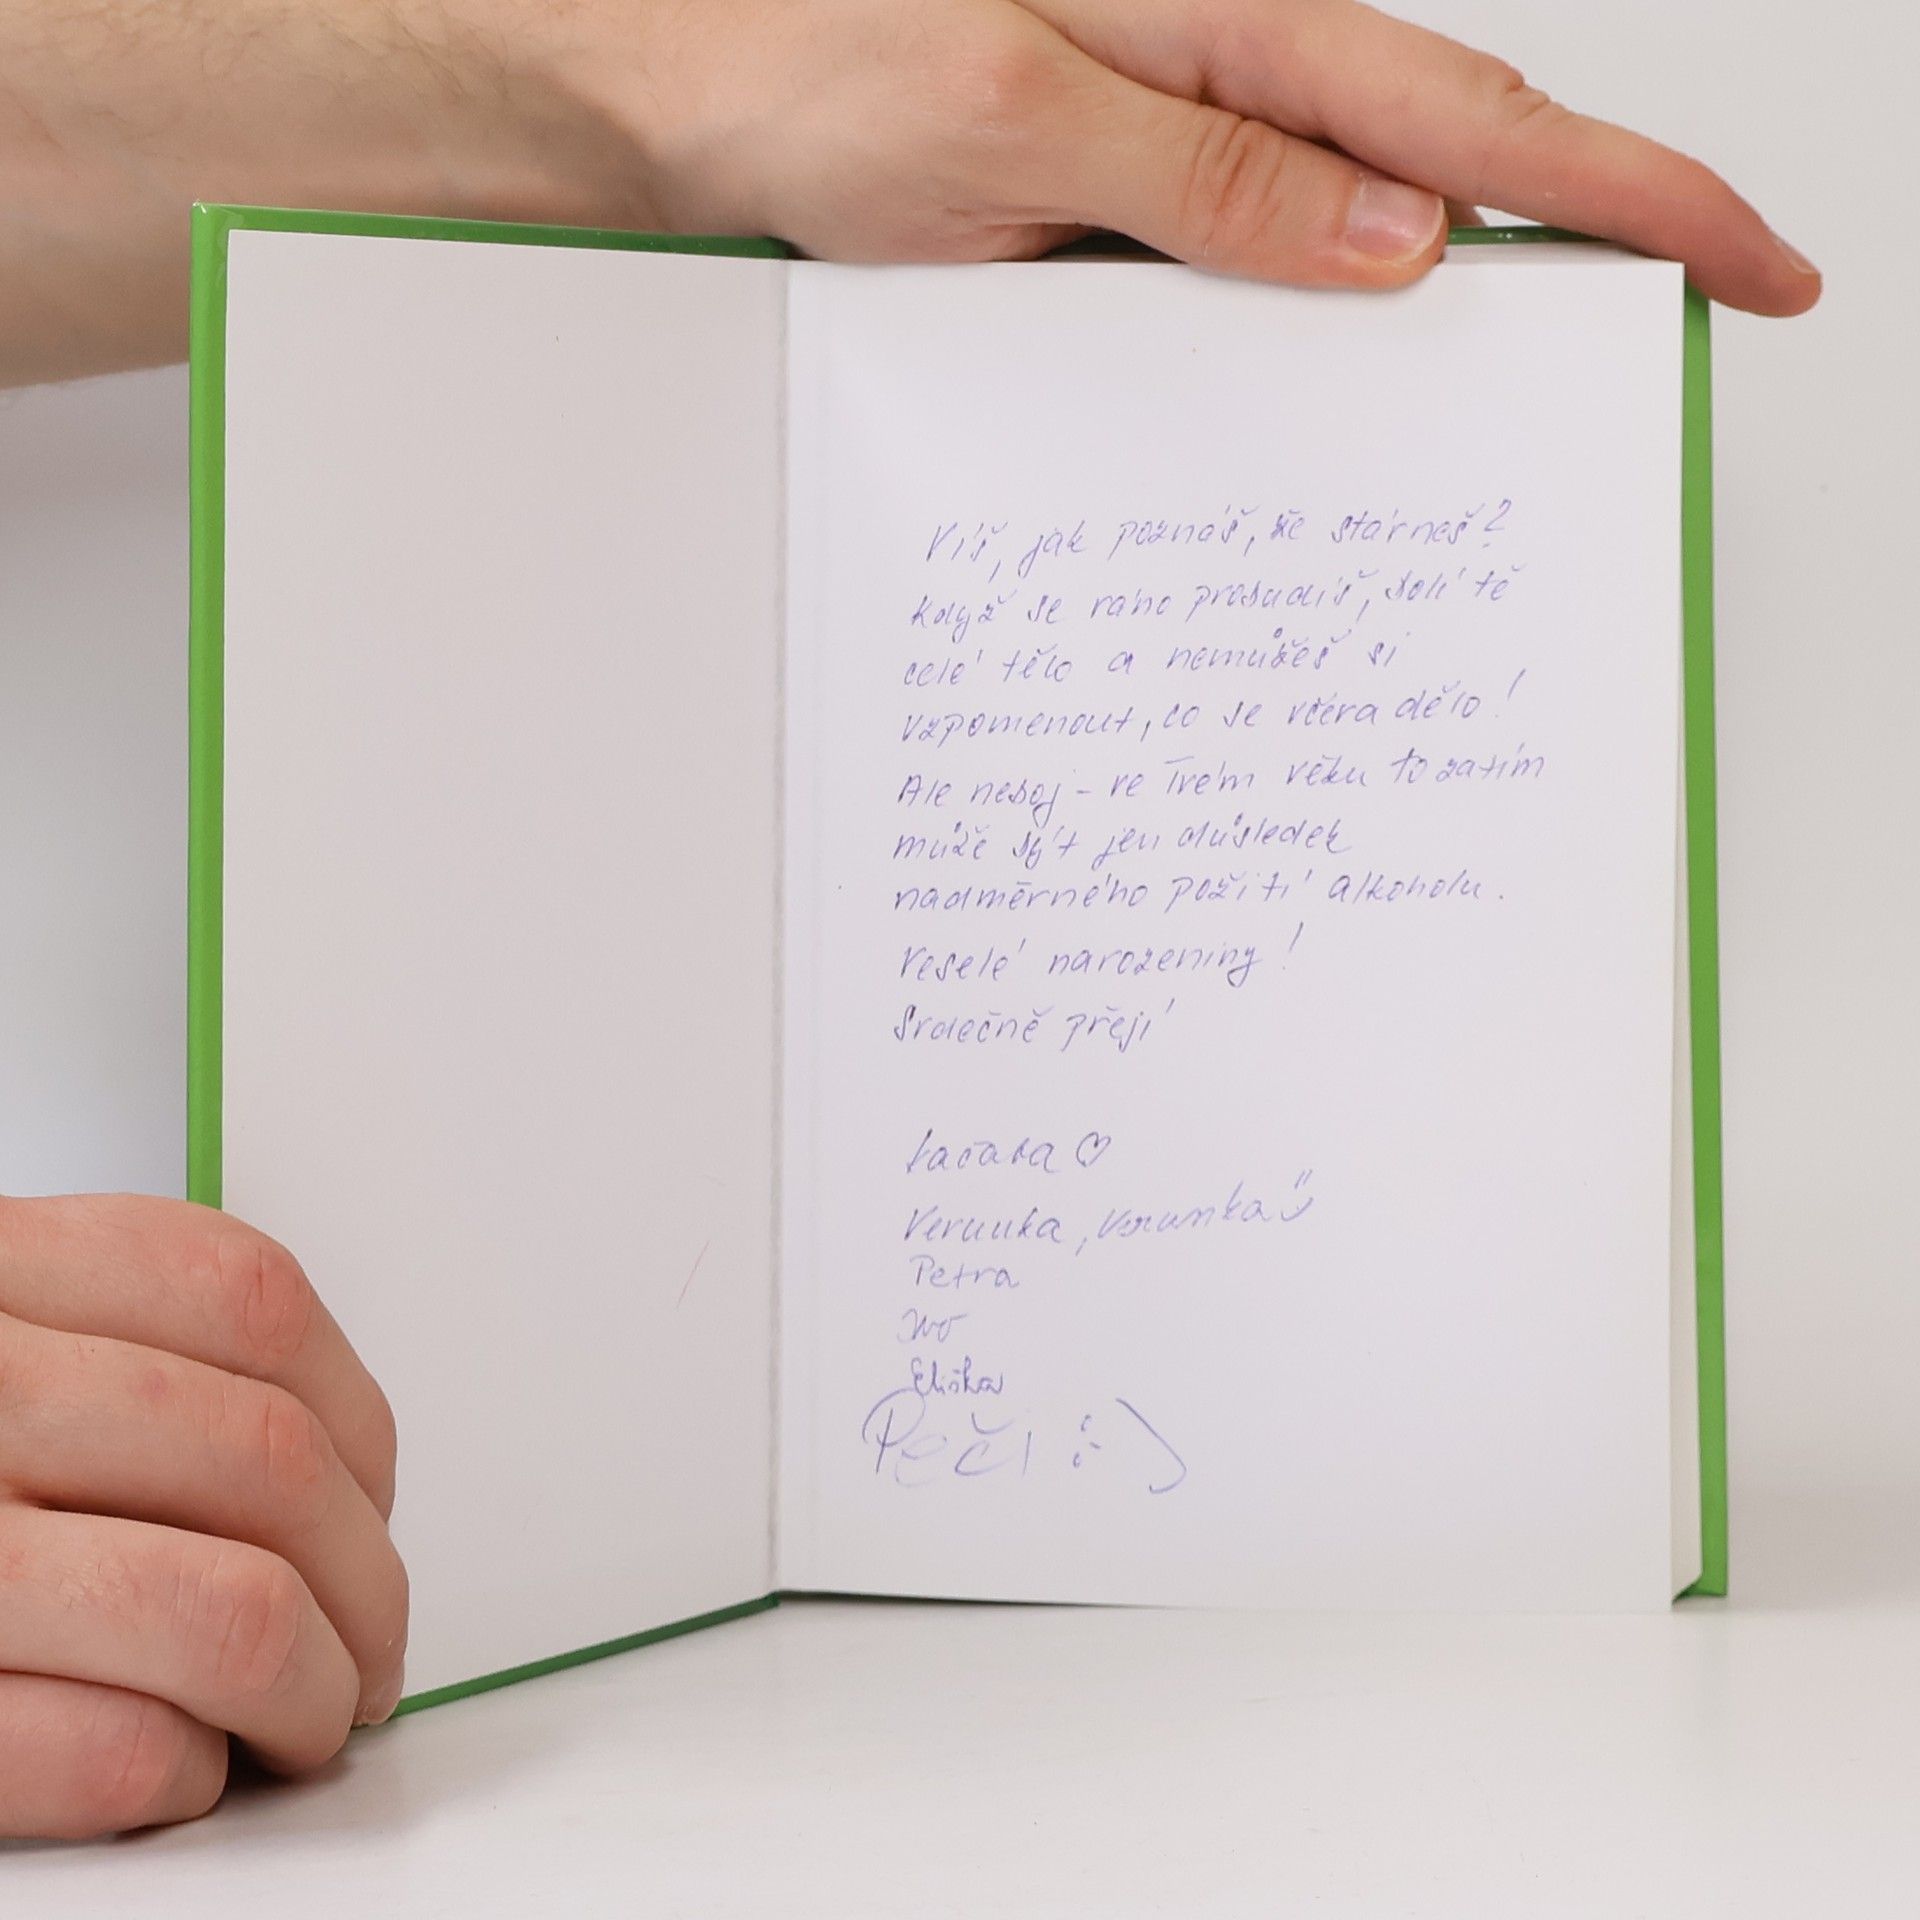 Víš, jak poznáš, že stárneš?
Když se ráno probudíš, bolí tě
celé tělo a nemůžeš si
vzpomenout, co se včera dělo!
Ale neboj - ve Tvém věku to zatím
může být jen důsledek
nadměrného požití alkoholu.
Veselé narozeniny!
Srdečně přejí
♡
Verunka, Verunka
Petra
Ivo
Eliška
Peči :-)